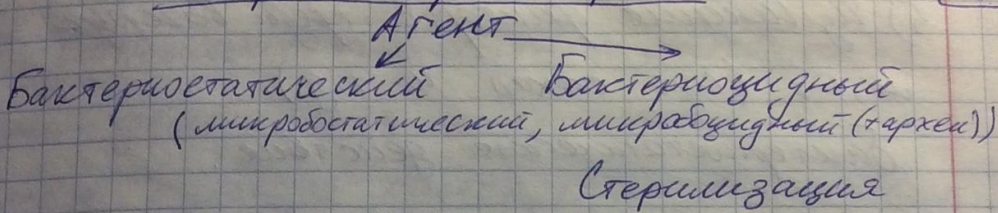 Агент
Бактериостатический Бактериоцидный
(микробостатический, микробоцидный (+археи))
Стерилизация